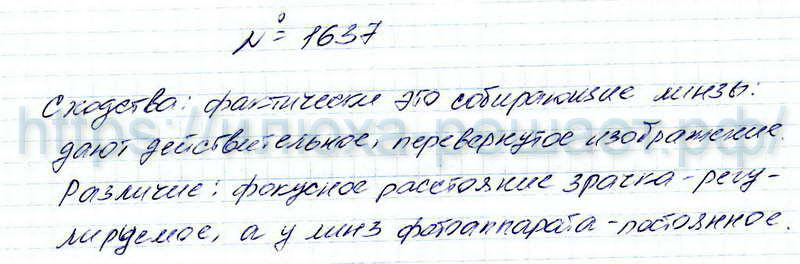 № 1637
Сходства: фактически это собирающие линзы:
дают действительное, перевернутое изображение.
Различие: фокусное расстояние зрачка - регу-
лируемое, а у линз фотоаппарата - постоянное.